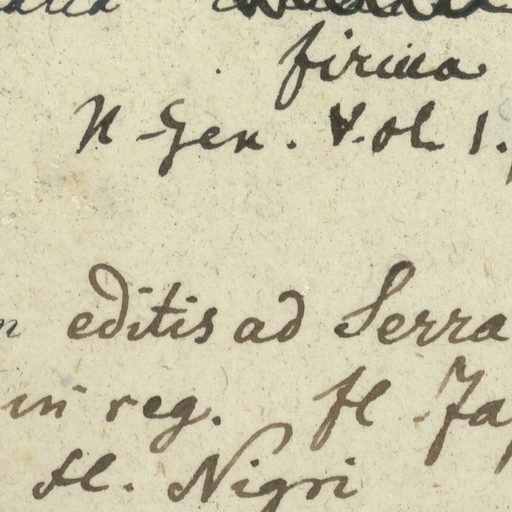 firma
N-Gen. Vol 1.
editis ad Serra
in reg. fl. Ja
fl. Nigri